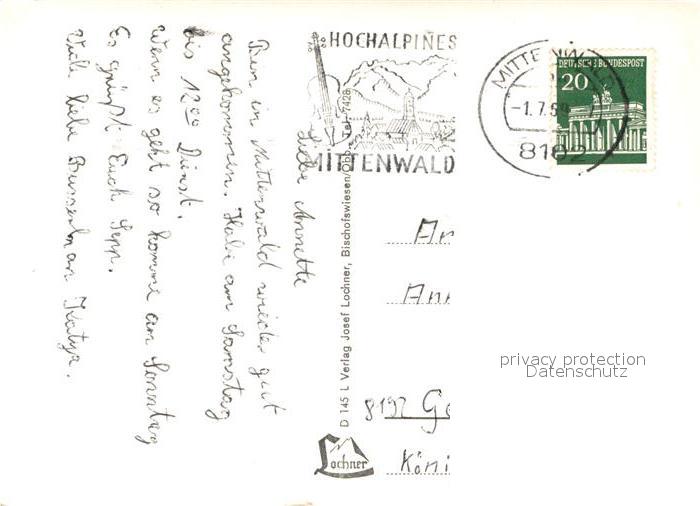 Liebe Annette
Bin in Mittenwald wieder gut
angekommen. Habe am Samstag
bis 12°° Dienst.
Wenn es geht so komme am Sonntag
Es grüßt Euch Sepp.
Viele liebe Busserln an Katja.
HOCHALPINES
MITTENWALD
MITTENWALD
-1.7.69
8102
DEUTSCHE BUNDESPOST
20
D 145 L Verlag Josef Lochner, Bischofswiesen/Obb., Tel. 7428
Lochner
An
Ann
8192 Ge
Köni
privacy protection
Datenschutz